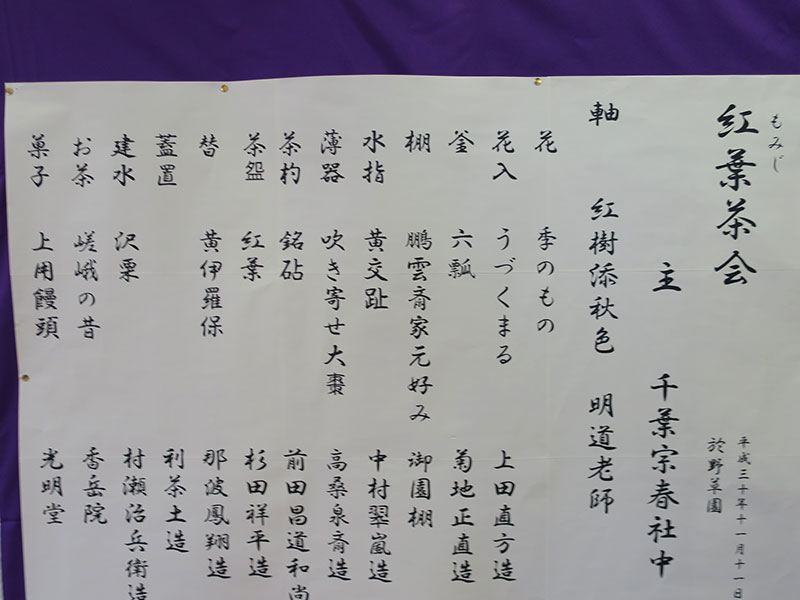 もみじ
紅葉茶会
平成三十年十一月十一日
於野草園
主 千葉宗春社中
軸 紅樹添秋色 明道老師
花 季のもの
花入 うづくまる 上田直方造
釜 六瓢 菊地正直造
棚 鵬雲斎家元好み 御園棚
水指 黄交趾 中村翠嵐造
薄器 吹き寄せ大棗 高桑泉斎造
茶杓 銘砧 前田昌道和尚
茶盌 紅葉 杉田祥平造
替 黄伊羅保 那波鳳翔造
蓋置 利茶土造
建水 沢栗 村瀬治兵衛造
お茶 嵯峨の昔 香岳院
菓子 上用饅頭 光明堂